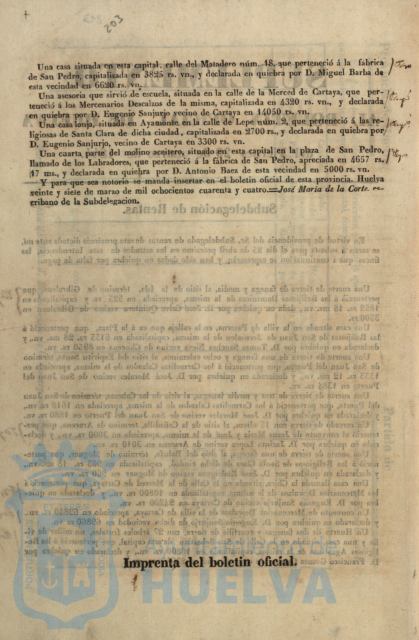 203
Una casa situada en esta capital, calle del Matadero núm. 48, que perteneció á la fabrica
de San Pedro, capitalizada en 3825 rs. vn., y declarada en quiebra por D. Miguel Barba de
esta vecindad en 6620 rs. vn.
Una asesoria que sirvió de escuela, situada en la calle de la Merced de Cartaya, que per-
teneció á los Mercenarios Descalzos de la misma, capitalizada en 4320 rs. vn., y declarada
en quiebra por D. Eugenio Sanjurjo vecino de Cartaya en 14050 rs. vn.
Una casa lonja, situada en Ayamonte en la calle de Lope núm. 2, que perteneció á las re-
ligiosas de Santa Clara de dicha ciudad, capitalizada en 2700 rs., y declarada en quiebra por
D. Eugenio Sanjurjo, vecino de Cartaya en 3300 rs. vn.
Una cuarta parte del molino aceitero, situado en esta capital en la plaza de San Pedro,
llamado de los Labradores, que perteneció á la fábrica de San Pedro, apreciada en 4657 rs,
17 ms., y declarada en quiebra por D. Antonio Baez de esta vecindad en 5000 rs. vn.
Y para que sea notorio se manda insertar en el boletin oficial de esta provincia. Huelva
veinte y siete de marzo de mil ochocientos cuarenta y cuatro.=José Maria de la Corte, es-
cribano de la Subdelegacion.
Imprenta del boletin oficial.
Ayuntamiento de
HUELVA